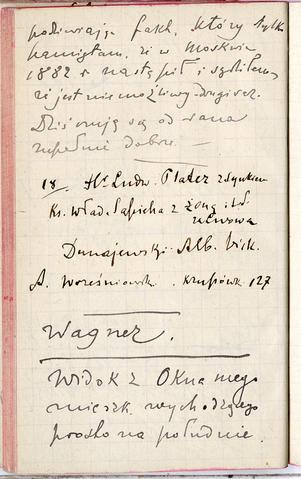 podziwiając fakt, który tylko
pamiętam, że w Moskwie
1882 r nastąpił i sądziłem
że jest niemożliwy drugi raz.
Dziś czuję się od rana
zupełnie dobrze.
18. Hr. Ludw. Plater z synkiem
Ks. Wład. Sapieha z żoną i
Dunajewski Alb.
A. Woześniowski. Krupówk 127
Wagner.
Widok z Okna mego
mieszk. wychodzącego
prosto na południe.